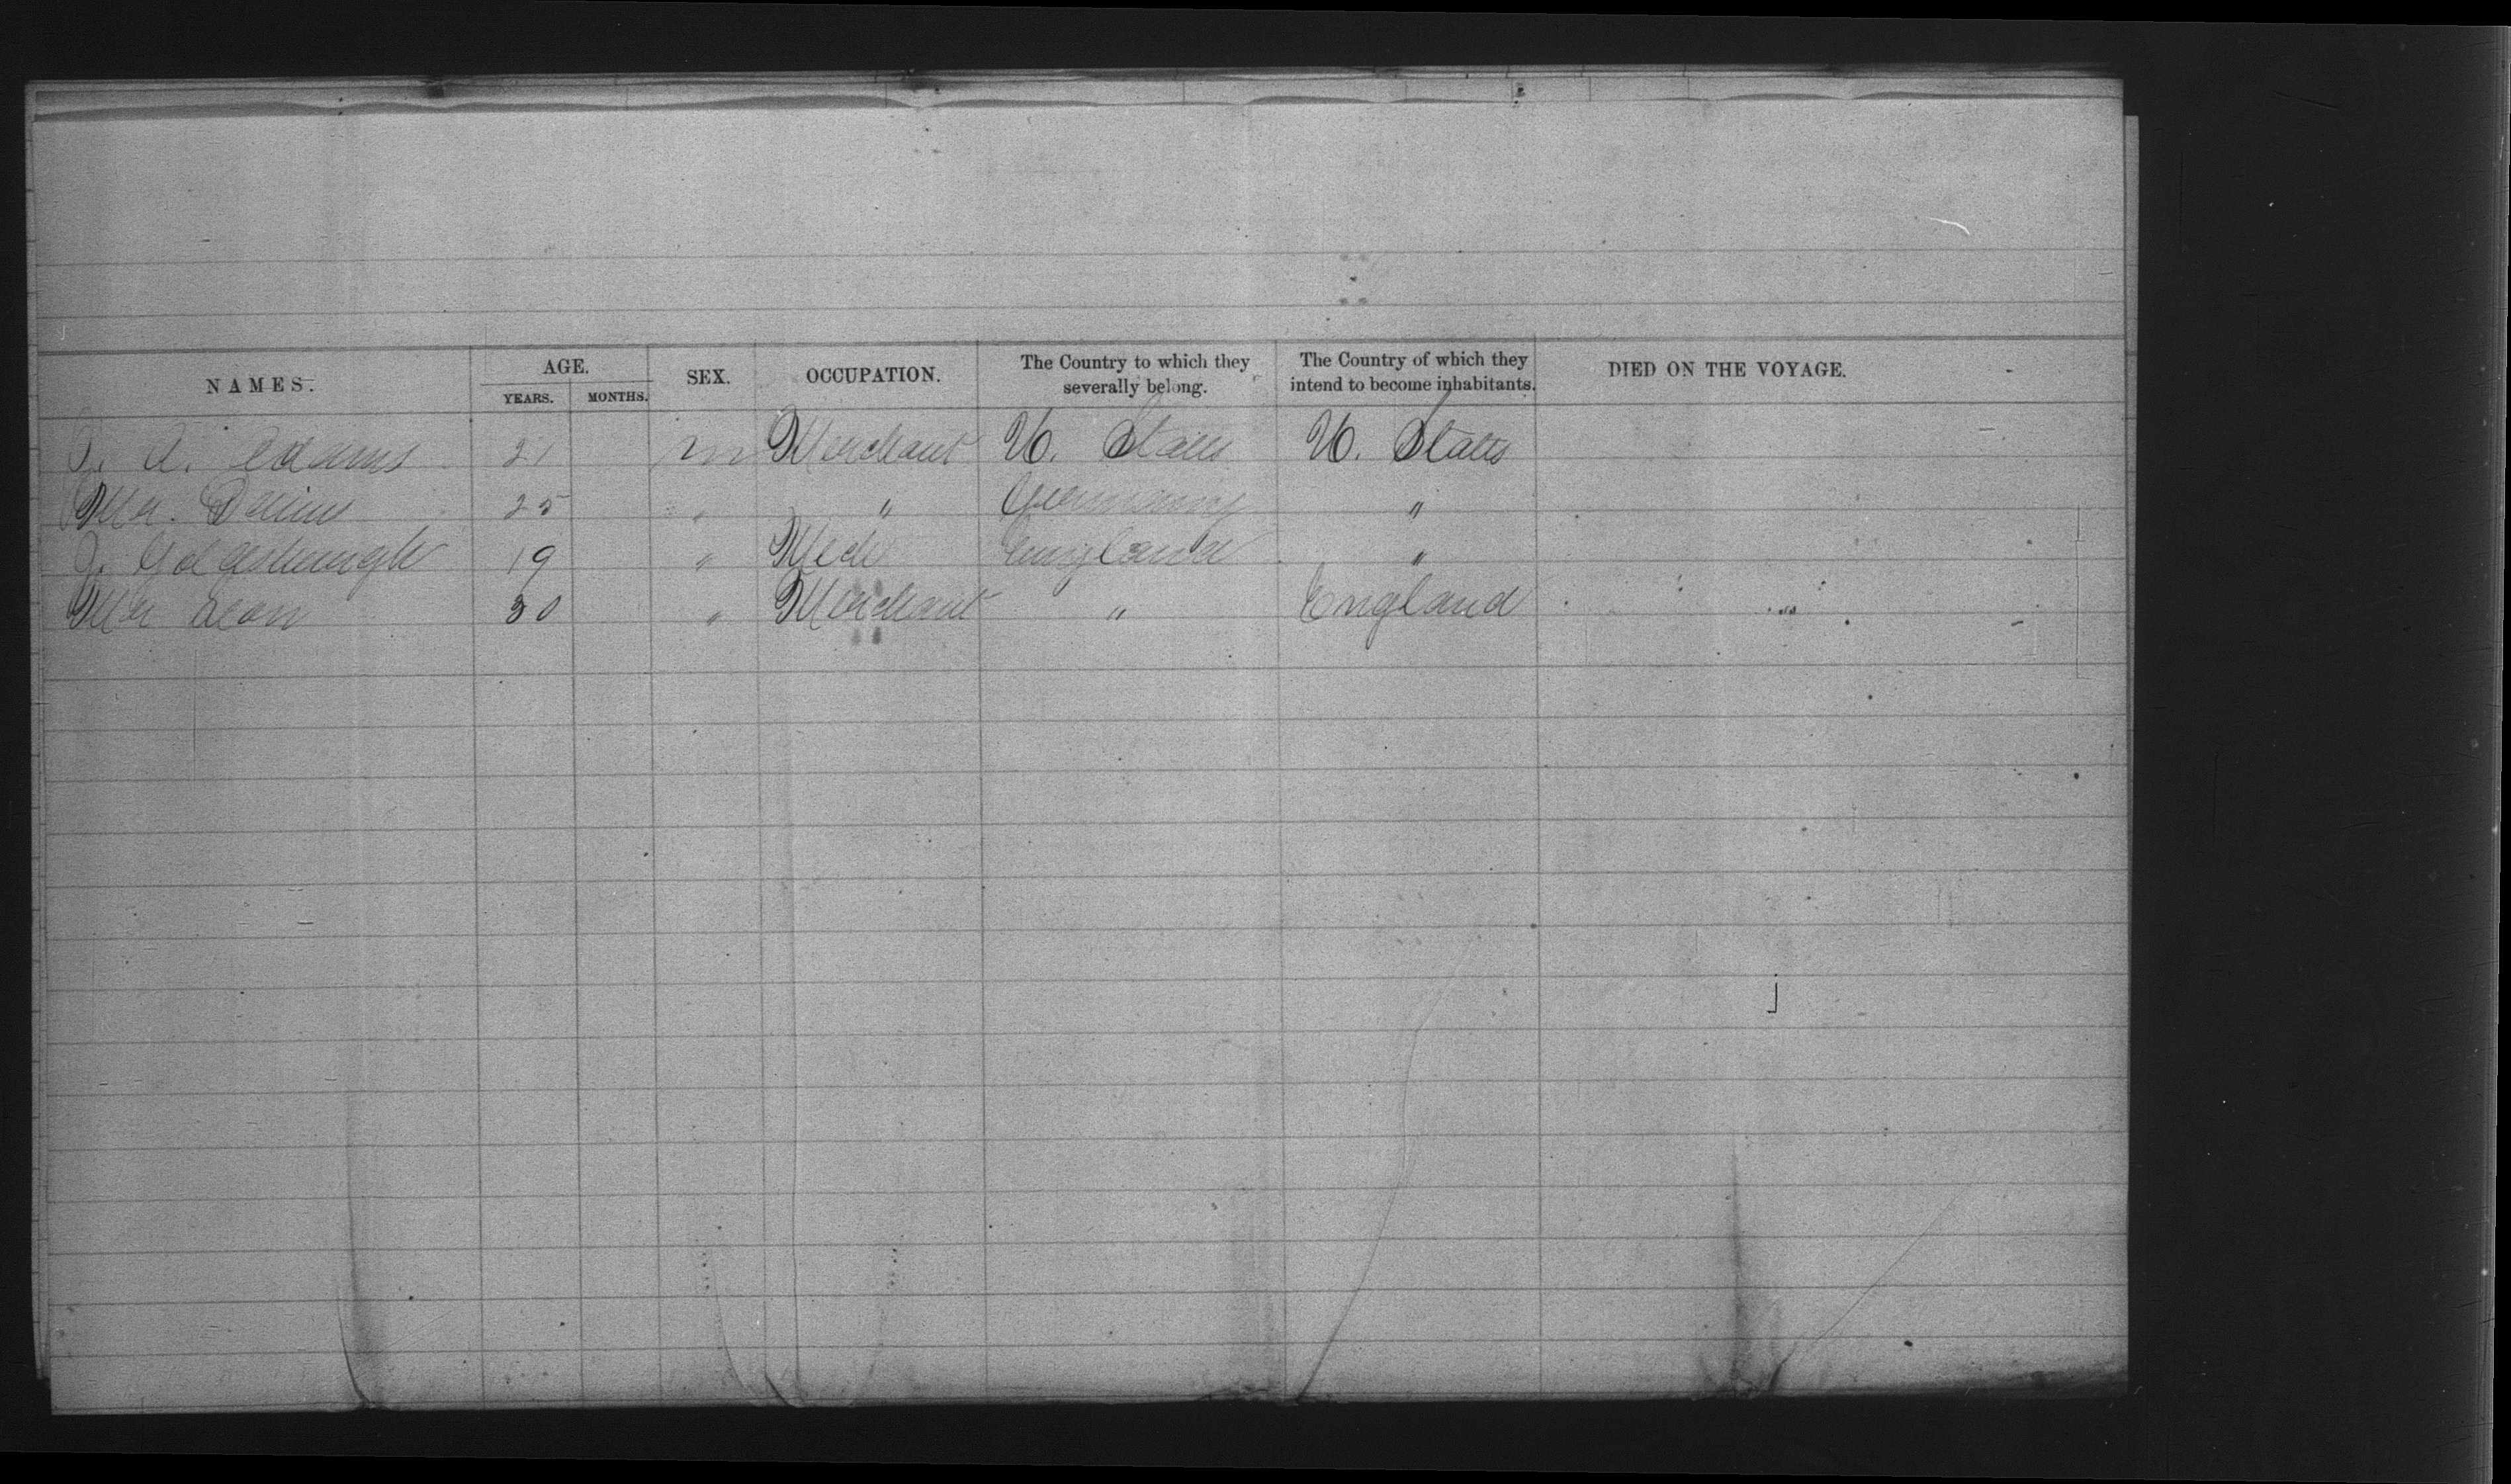 NAMES. AGE. SEX. OCCUPATION. The Country to which they severally belong. The Country of which they intend to become inhabitants. DIED ON THE VOYAGE.
YEARS. MONTHS.
J. A. Adams 21 m Merchant U. States U. States
Mr. 25 " " Germany "
J. 19 " Mech England "
Mr 30 " Merchant " England